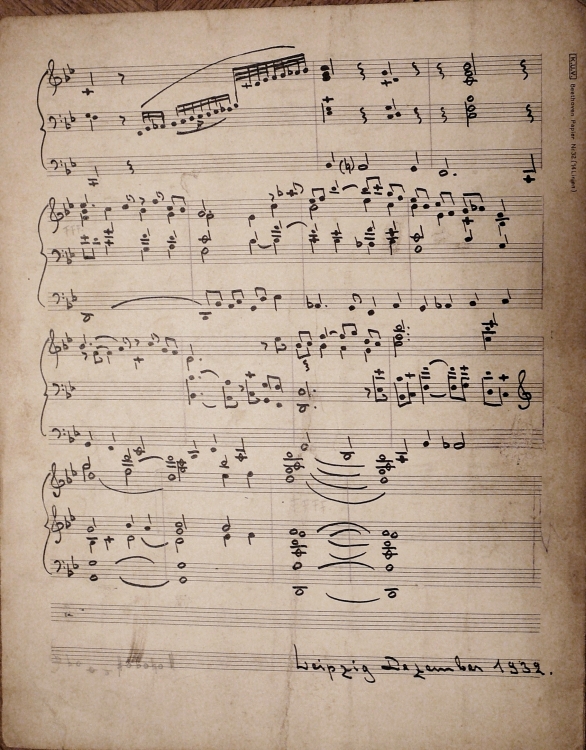 K.U.V. Beethoven Papier Nr. 32 (14 Linien)
Leipzig Dezember 1932.